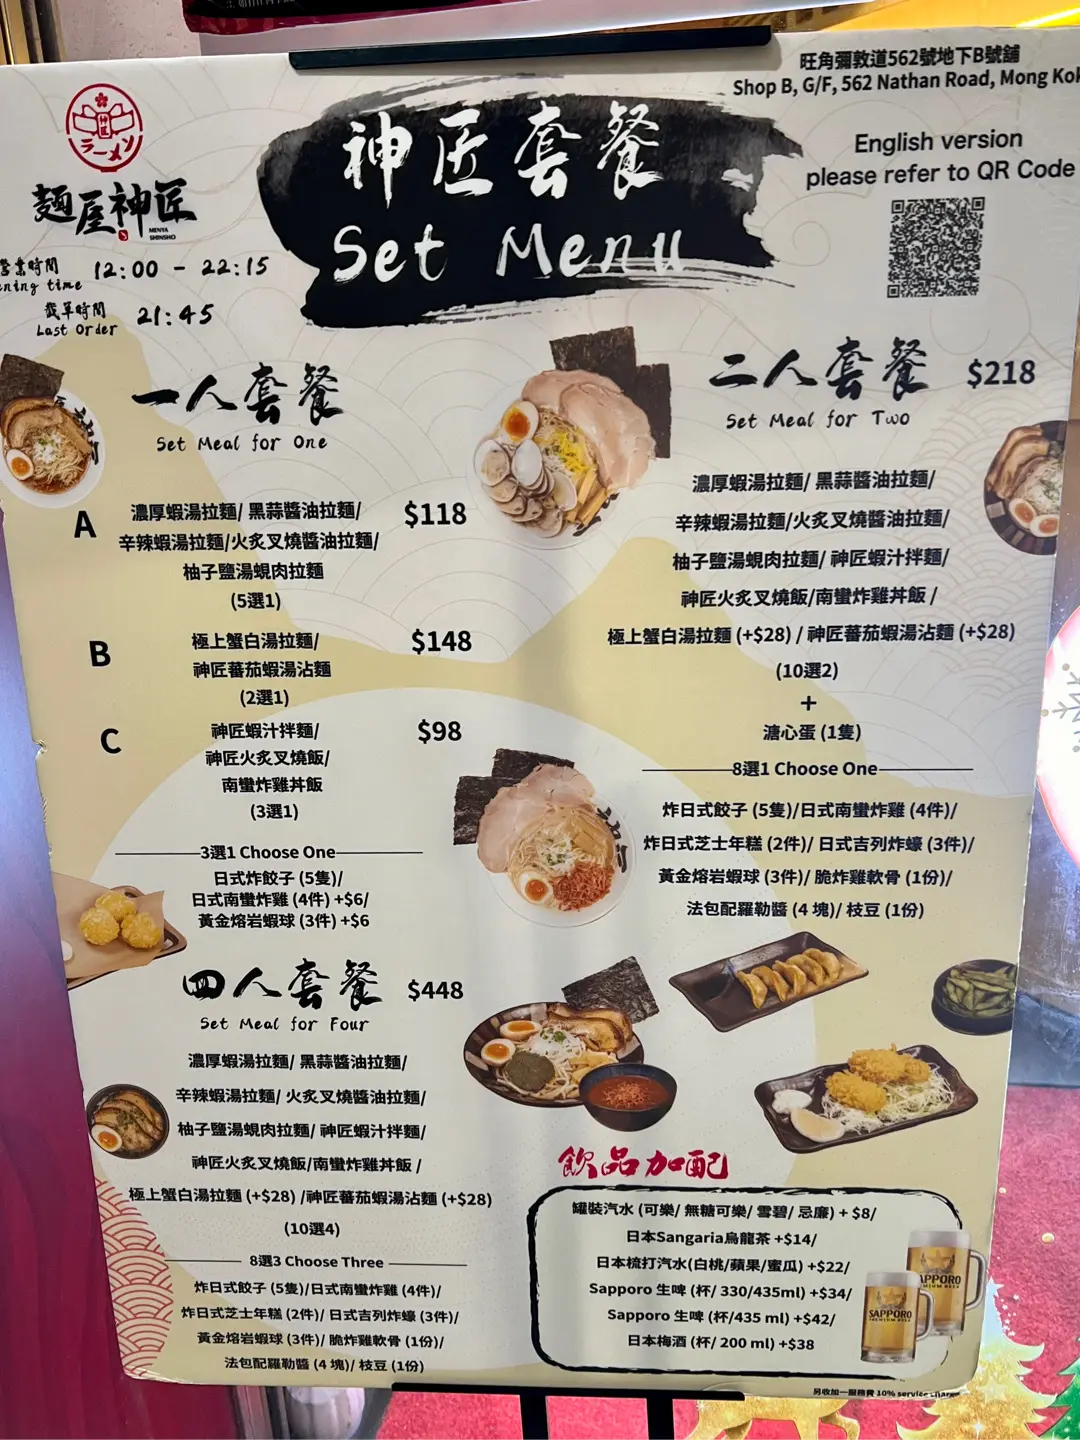 旺角彌敦道562號地下B號舖
Shop B, G/F, 562 Nathan Road, Mong Kok
ラーメン
麵屋神匠
MENYA
SHINSHO
神匠套餐
Set Menu
English version
please refer to QR Code
營業時間 12:00 - 22:15
ning time
截單時間 21:45
Last Order
一人套餐
Set Meal for One
A 濃厚蝦湯拉麵/ 黑蒜醬油拉麵/ $118
辛辣蝦湯拉麵/火炙叉燒醬油拉麵/
柚子鹽湯蜆肉拉麵
(5選1)
B 極上蟹白湯拉麵/ $148
神匠蕃茄蝦湯沾麵
(2選1)
C 神匠蝦汁拌麵/ $98
神匠火炙叉燒飯/
南蠻炸雞丼飯
(3選1)
3選1 Choose One
日式炸餃子 (5隻)/
日式南蠻炸雞 (4件) +$6/
黃金熔岩蝦球 (3件) +$6
二人套餐 $218
Set Meal for Two
濃厚蝦湯拉麵/ 黑蒜醬油拉麵/
辛辣蝦湯拉麵/火炙叉燒醬油拉麵/
柚子鹽湯蜆肉拉麵/ 神匠蝦汁拌麵/
神匠火炙叉燒飯/南蠻炸雞丼飯 /
極上蟹白湯拉麵 (+$28) / 神匠蕃茄蝦湯沾麵 (+$28)
(10選2)
+
溏心蛋 (1隻)
8選1 Choose One
炸日式餃子 (5隻)/日式南蠻炸雞 (4件)/
炸日式芝士年糕 (2件)/ 日式吉列炸蠔 (3件)/
黃金熔岩蝦球 (3件)/ 脆炸雞軟骨 (1份)/
法包配羅勒醬 (4 塊)/ 枝豆 (1份)
四人套餐 $448
Set Meal for Four
濃厚蝦湯拉麵/ 黑蒜醬油拉麵/
辛辣蝦湯拉麵/ 火炙叉燒醬油拉麵/
柚子鹽湯蜆肉拉麵/ 神匠蝦汁拌麵/
神匠火炙叉燒飯/南蠻炸雞丼飯 /
極上蟹白湯拉麵 (+$28) /神匠蕃茄蝦湯沾麵 (+$28)
(10選4)
8選3 Choose Three
炸日式餃子 (5隻)/日式南蠻炸雞 (4件)/
炸日式芝士年糕 (2件)/ 日式吉列炸蠔 (3件)/
黃金熔岩蝦球 (3件)/ 脆炸雞軟骨 (1份)/
法包配羅勒醬 (4 塊)/ 枝豆 (1份)
飲品加配
罐裝汽水 (可樂/ 無糖可樂/ 雪碧/ 忌廉) + $8/
日本Sangaria烏龍茶 +$14/
日本梳打汽水(白桃/蘋果/蜜瓜) +$22/
Sapporo 生啤 (杯/ 330/435ml) +$34/
Sapporo 生啤 (杯/435 ml) +$42/
日本梅酒 (杯/ 200 ml) +$38
SAPPORO
SAPPORO
另收加一服務費 10% service charge